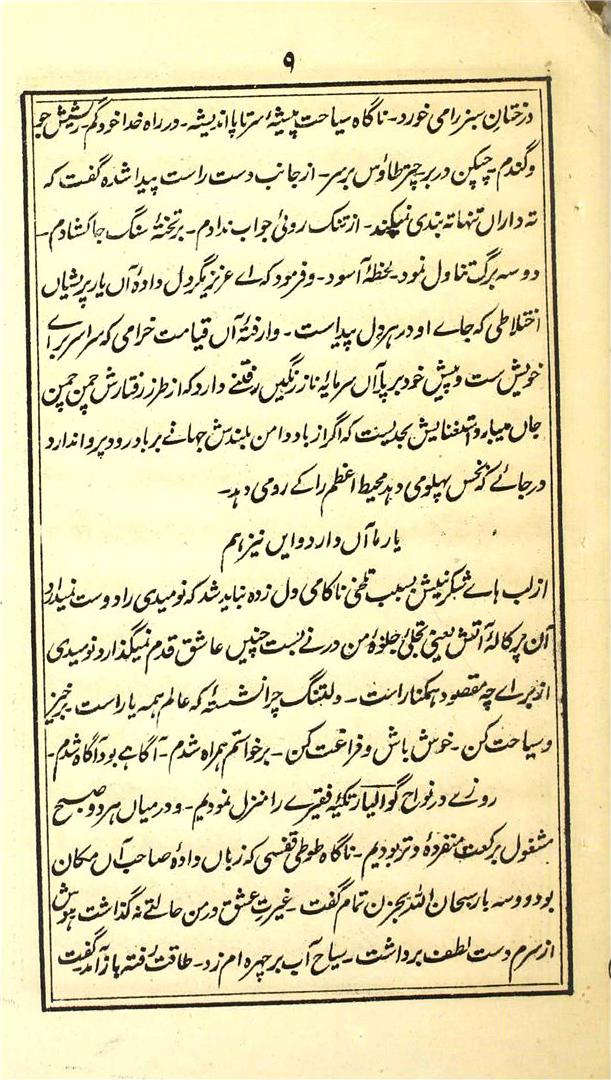 ۹
درختان سبز را می خورد۔ ناگاه سیاحت پیشهٔ سرتاپا اندیشه۔ در راه خدا خود گم۔ ریشش جو
و گندم۔ چپکن در بر چتر طاؤس بر سر۔ از جانب دست راست پیدا شده گفت که
ته داران تنها ته بندی نمیکنند۔ از تنک روئی جواب ندادم۔ بر تختهٔ سنگ جا کشادم۔
دو سه برگ تناول نمود۔ لحظهٔ آسود۔ و فرمود که اے عزیز یگر دل دادهٔ آں یار پریشاں
اختلاطی که جاے او در هر دل پیداست۔ وارفتهٔ آں قیامت خرامی که سراسر براے
خویش ست و پیش خود بر پا آں سرمایهٔ ناز رنگیں رفتنے دارد که از طرز رفتارش چمن چمن
جاں میبارد استغنایش بحدیست که اگر از باد دامن بلندش جهانے بر باد رود پروا ندارد
در جائے که خس پهلو می دهد محیط اعظم را کے رو می دهد۔
یار ما آں دارد و ایں نیز هم
از لب هاے شکرینش بسبب تلخی ناکامی دل زده نباید شد که نومیدی را دوست میدارد
آں پرکالهٔ آتش یعنی تجلی جلوهٔ من در نے بست چنیں عاشق قدم نمیگذارد نومیدی
از براے چه مقصود همکنار است۔ دلتنگ چرا نشستهٔ که عالم همه یار است۔ خیز
و سیاحت کن۔ خوش باش و فراغت کن۔ برخواستم همراه شدم۔ آگاهے بود آگاه شدم۔
روزے در نواح گوالیار تکیهٔ فقیرے را منزل نمودیم۔ و درمیاں هر دو صبح
مشغول برکعت منفردهٔ وتر بودیم۔ ناگاه طوطی قفسی که زباں دادهٔ صاحب آں مکان
بود دو سه بار سبحان الله بحزن تمام گفت۔ غیرت عشق در من حالتے نه گذاشت هوش
از سرم دست لطف برداشت۔ سیاح آب بر چهره ام زد۔ طاقت رفته باز آمد گفت